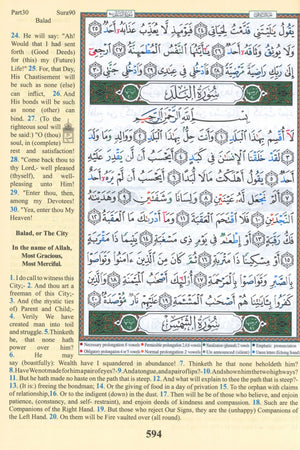 Part30 Sura90
Balad
24. He will say: "Ah!
Would that I had sent
forth (Good Deeds)
for (this) my (Future)
Life!" 25. For, that Day,
His Chastisement will
be such as none (else)
can inflict, 26. And
His bonds will be such
as none (other) can
bind. 27. (To the
righteous soul will
be said:) "O (thou)
soul, in (complete)
rest and satisfaction!
28. "Come back thou to
thy Lord,- well pleased
(thyself), and well-
pleasing unto Him!
29. "Enter thou, then,
among my Devotees!
30. "Yea, enter thou My
Heaven!
Balad, or The City
In the name of Allah,
Most Gracious,
Most Merciful.
1. I do call to witness this
City;- 2. And thou art a
freeman of this City;-
3. And (the mystic ties
of) Parent and Child;-
4. Verily We have
created man into toil
and struggle. 5. Thinketh
he, that none hath
power over him?
6. He may
say (boastfully): Wealth have I squandered in abundance! 7. Thinketh he that none beholdeth him?
8. Have We not made for him a pair of eyes?- 9. And a tongue, and a pair of lips?- 10. And shown him the two highways?
11. But he hath made no haste on the path that is steep. 12. And what will explain to thee the path that is steep?-
13. (It is:) freeing the bondman; 14. Or the giving of food in a day of privation 15. To the orphan with claims
of relationship, 16. Or to the indigent (down) in the dust. 17. Then will he be of those who believe, and enjoin
patience, (constancy, and self- restraint), and enjoin deeds of kindness and compassion. 18. Such are the
Companions of the Right Hand. 19. But those who reject Our Signs, they are the (unhappy) Companions of
the Left Hand. 20. On them will be Fire vaulted over (all round).
يَقُولُ يَٰلَيْتَنِى قَدَّمْتُ لِحَيَاتِى ٢٤ فَيَوْمَئِذٍ لَّا يُعَذِّبُ عَذَابَهُۥٓ أَحَدٌ
٢٥ وَلَا يُوثِقُ وَثَاقَهُۥٓ أَحَدٌ ٢٦ يَٰٓأَيَّتُهَا ٱلنَّفْسُ ٱلْمُطْمَئِنَّةُ ٢٧
ٱرْجِعِىٓ إِلَىٰ رَبِّكِ رَاضِيَةً مَّرْضِيَّةً ٢٨ فَٱدْخُلِى فِى عِبَٰدِى ٢٩ وَٱدْخُلِى جَنَّتِى ٣٠
سُورَةُ الْبَلَدِ
بِسْمِ ٱللَّهِ ٱلرَّحْمَٰنِ ٱلرَّحِيمِ
لَآ أُقْسِمُ بِهَٰذَا ٱلْبَلَدِ ١ وَأَنتَ حِلٌّۢ بِهَٰذَا ٱلْبَلَدِ ٢ وَوَالِدٍ وَمَا وَلَدَ
٣ لَقَدْ خَلَقْنَا ٱلْإِنسَٰنَ فِى كَبَدٍ ٤ أَيَحْسَبُ أَن لَّن يَقْدِرَ عَلَيْهِ
أَحَدٌ ٥ يَقُولُ أَهْلَكْتُ مَالًا لُّبَدًا ٦ أَيَحْسَبُ أَن لَّمْ يَرَهُۥٓ أَحَدٌ
٧ أَلَمْ نَجْعَل لَّهُۥ عَيْنَيْنِ ٨ وَلِسَانًا وَشَفَتَيْنِ ٩ وَهَدَيْنَٰهُ
ٱلنَّجْدَيْنِ ١٠ فَلَا ٱقْتَحَمَ ٱلْعَقَبَةَ ١١ وَمَآ أَدْرَىٰكَ مَا ٱلْعَقَبَةُ ١٢
فَكُّ رَقَبَةٍ ١٣ أَوْ إِطْعَٰمٌ فِى يَوْمٍ ذِى مَسْغَبَةٍ ١٤ يَتِيمًا ذَا مَقْرَبَةٍ
١٥ أَوْ مِسْكِينًا ذَا مَتْرَبَةٍ ١٦ ثُمَّ كَانَ مِنَ ٱلَّذِينَ ءَامَنُوا۟ وَتَوَاصَوْا۟
بِٱلصَّبْرِ وَتَوَاصَوْا۟ بِٱلْمَرْحَمَةِ ١٧ أُو۟لَٰٓئِكَ أَصْحَٰبُ ٱلْمَيْمَنَةِ ١٨ وَٱلَّذِينَ
كَفَرُوا۟ بِـَٔايَٰتِنَا هُمْ أَصْحَٰبُ ٱلْمَشْـَٔمَةِ ١٩ عَلَيْهِمْ نَارٌ مُّؤْصَدَةٌۢ ٢٠
سُورَةُ الشَّمْسِ
594